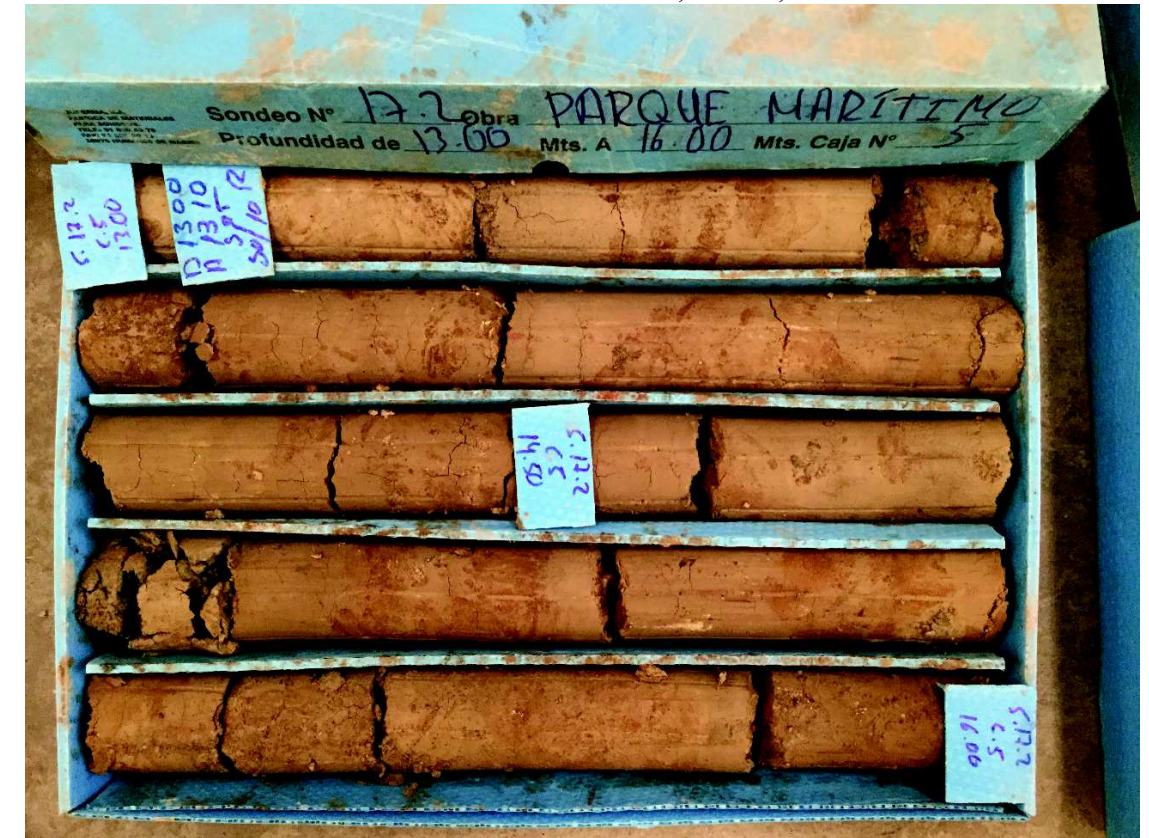 Sondeo Nº 17.2 Obra PARQUE MARÍTIMO
Profundidad de 13.00 Mts. A 16.00 Mts. Caja Nº 5
S.17.2
C.5
13.00
D 13 00
13 10
SPT
50/10 R
S.17.2
C.5
14.50
S.17.2
C.5
16.00